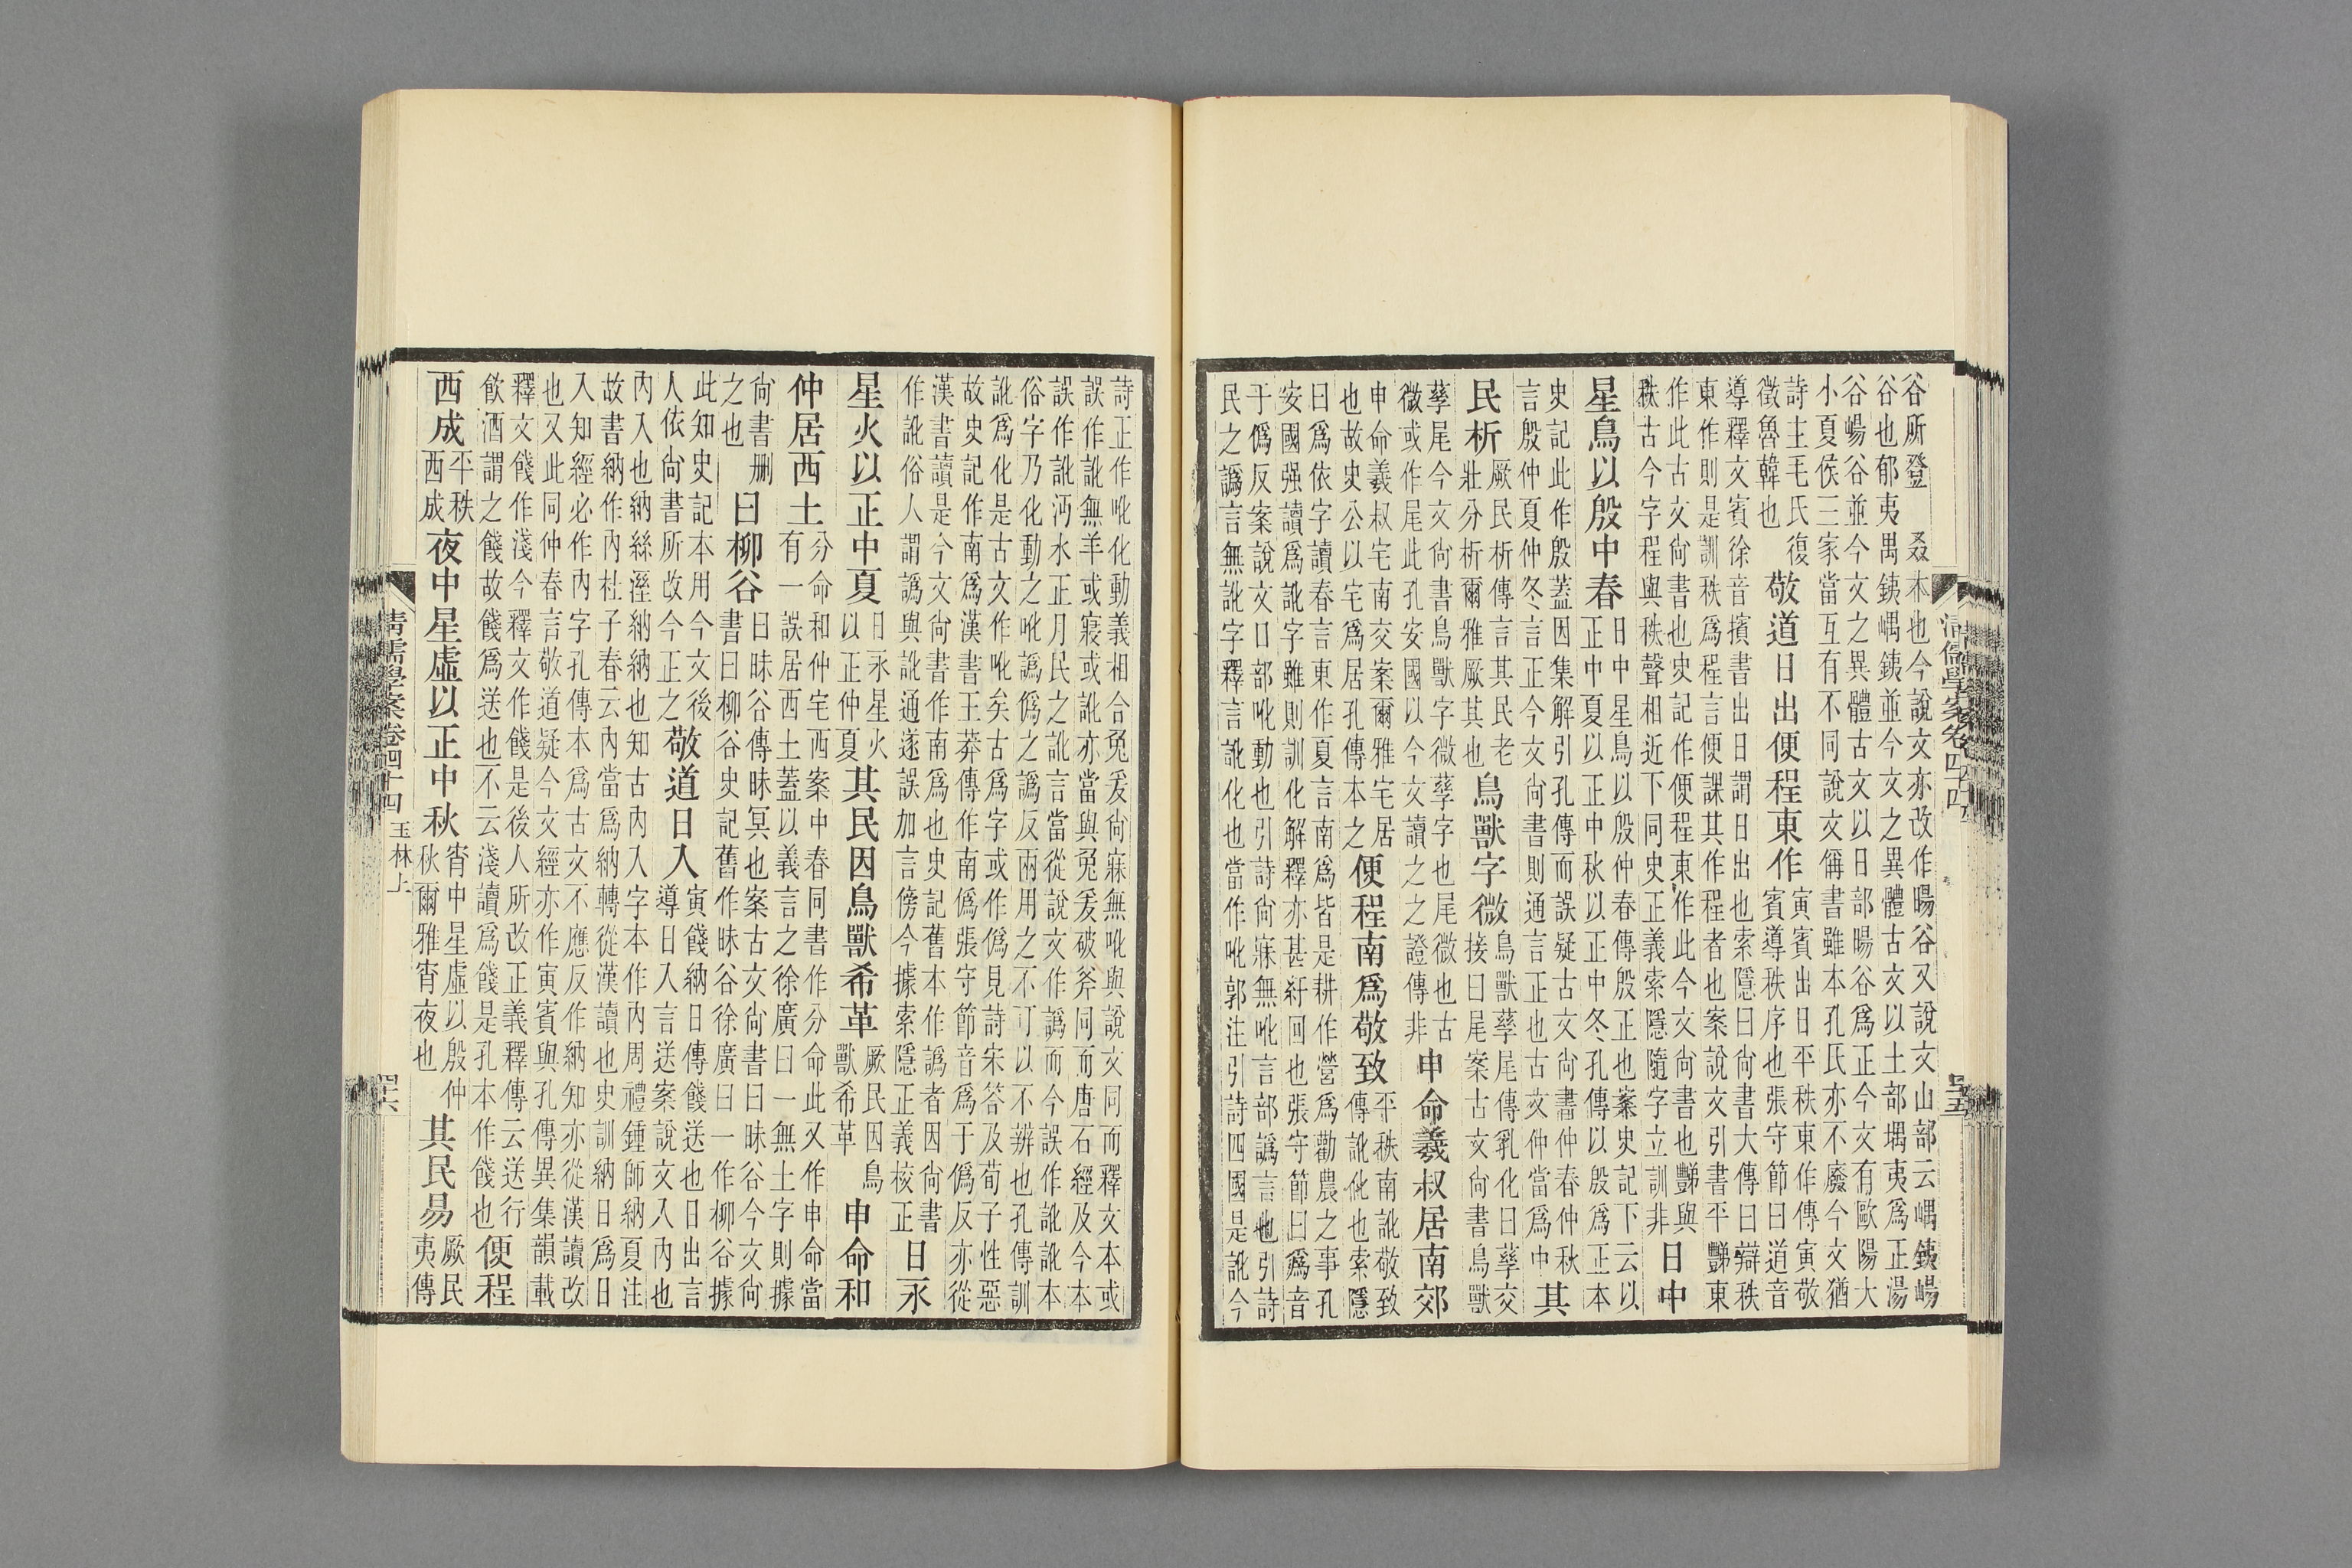 清儒學案卷四十四
四五
谷所登叒木也今說文亦改作暘谷又說文山部云嵎銕崵
谷也郁夷禺銕嵎銕並今文之異體古文以土部堣夷爲正湯
谷崵谷並今文之異體古文以日部暘谷爲正今文有歐陽大
小夏侯三家當互有不同說文偁書雖本孔氏亦不廢今文猶
詩主毛氏復
徵魯韓也
敬道日出便程東作
寅賓出日平秩東作傳寅敬
賓導秩序也張守節曰道音
導釋文賓徐音擯書出日謂日出也索隱曰尙書大傳曰辯秩
東作則是訓秩爲程言便課其作程者也案說文引書平豑東
作此古文尙書也史記作便程東作此今文尙書也豑與
秩古今字程與秩聲相近下同史正義索隱隨字立訓非
日中
星鳥以殷中春
日中星鳥以殷仲春傳殷正也案史記下云以
正中夏以正中秋以正中冬孔傳以殷爲正本
史記此作殷蓋因集解引孔傳而誤疑古文尙書仲春仲秋
言殷仲夏仲冬言正今文尙書則通言正也古文仲當爲中
其
民析
厥民析傳言其民老
壯分析爾雅厥其也
鳥獸字微
鳥獸孳尾傳乳化曰孳交
接曰尾案古文尙書鳥獸
孳尾今文尙書鳥獸字微孳字也尾微也古
微或作尾此孔安國以今文讀之之證傳非
申命羲叔居南郊
申命羲叔宅南交案爾雅宅居
也故史公以宅爲居孔傳本之
便程南爲敬致
平秩南訛敬致
傳訛化也索隱
曰爲依字讀春言東作夏言南爲皆是耕作營爲勸農之事孔
安國强讀爲訛字雖則訓化解釋亦甚紆回也張守節曰爲音
于僞反案說文口部吪動也引詩尙寐無吪言部譌言也引詩
民之譌言無訛字釋言訛化也當作吪郭注引詩四國是訛今
詩正作吪化動義相合兔爰尙寐無吪與說文同而釋文本或
誤作訛無羊或寢或訛亦當與兔爰破斧同而唐石經及今本
誤作訛沔水正月民之訛言當從說文作譌而今誤作訛訛本
俗字乃化動之吪譌僞之譌反兩用之不可以不辨也孔傳訓
訛爲化是古文作吪矣古爲字或作僞見詩宋答及荀子性惡
故史記作南爲漢書王莽傳作南僞張守節音爲于僞反亦從
漢書讀是今文尙書作南爲也史記舊本作譌者因尙書
作訛俗人謂譌與訛通遂誤加言傍今據索隱正義校正
日永
星火以正中夏
日永星火
以正仲夏
其民因鳥獸希革
厥民因鳥
獸希革
申命和
仲居西土
分命和仲宅西案中春同書作分命此又作申命當
有一誤居西土蓋以義言之徐廣曰一無土字則據
尙書刪
之也
曰柳谷
曰昧谷傳昧冥也案古文尙書曰昧谷今文尙
書曰柳谷史記舊作昧谷徐廣曰一作柳谷據
此知史記本用今文後
人依尙書所改今正之
敬道日入
寅餞納日傳餞送也日出言
導日入言送案說文入內也
內入也納絲溼納納也知古內入字本作內周禮鍾師納夏注
故書納作內杜子春云內當爲納轉從漢讀也史訓納日爲日
入知經必作內字孔傳本爲古文不應反作納知亦從漢讀改
也又此同仲春言敬道疑今文經亦作寅賓與孔傳異集韻載
釋文餞作淺今釋文作餞是後人所改正義釋傳云送行
飲酒謂之餞故餞爲送也不云淺讀爲餞是孔本作餞也
便程
西成
平秩
西成
夜中星虛以正中秋
宵中星虛以殷仲
秋爾雅宵夜也
其民易
厥民
夷傳
清儒學案卷四十四
玉林上
四六